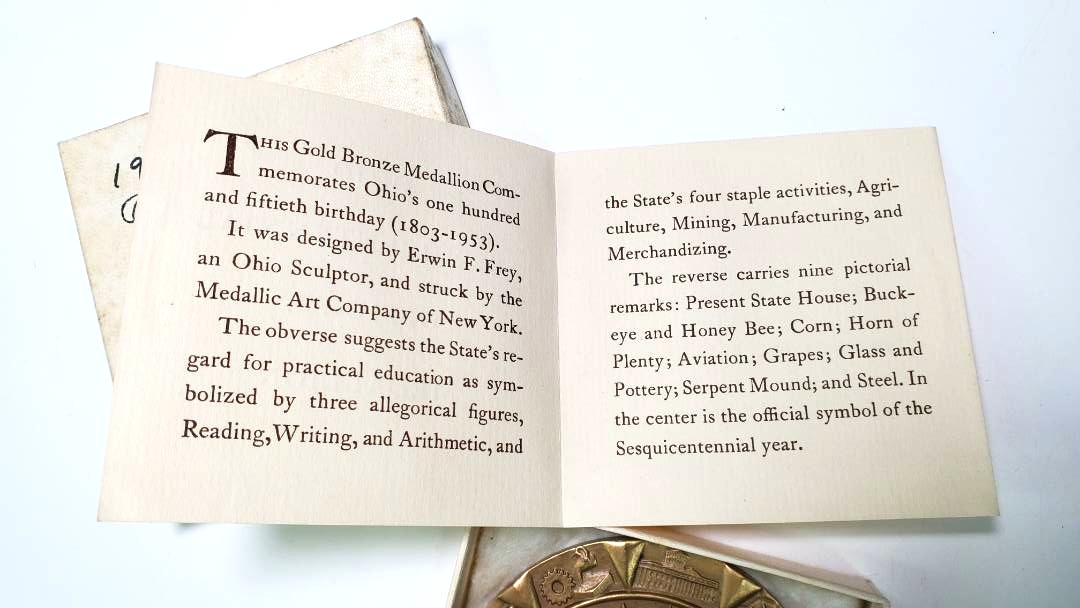 THIS Gold Bronze Medallion Com-
memorates Ohio's one hundred
and fiftieth birthday (1803-1953).
It was designed by Erwin F. Frey,
an Ohio Sculptor, and struck by the
Medallic Art Company of New York.
The obverse suggests the State's re-
gard for practical education as sym-
bolized by three allegorical figures,
Reading, Writing, and Arithmetic, and
the State's four staple activities, Agri-
culture, Mining, Manufacturing, and
Merchandizing.
The reverse carries nine pictorial
remarks: Present State House; Buck-
eye and Honey Bee; Corn; Horn of
Plenty; Aviation; Grapes; Glass and
Pottery; Serpent Mound; and Steel. In
the center is the official symbol of the
Sesquicentennial year.